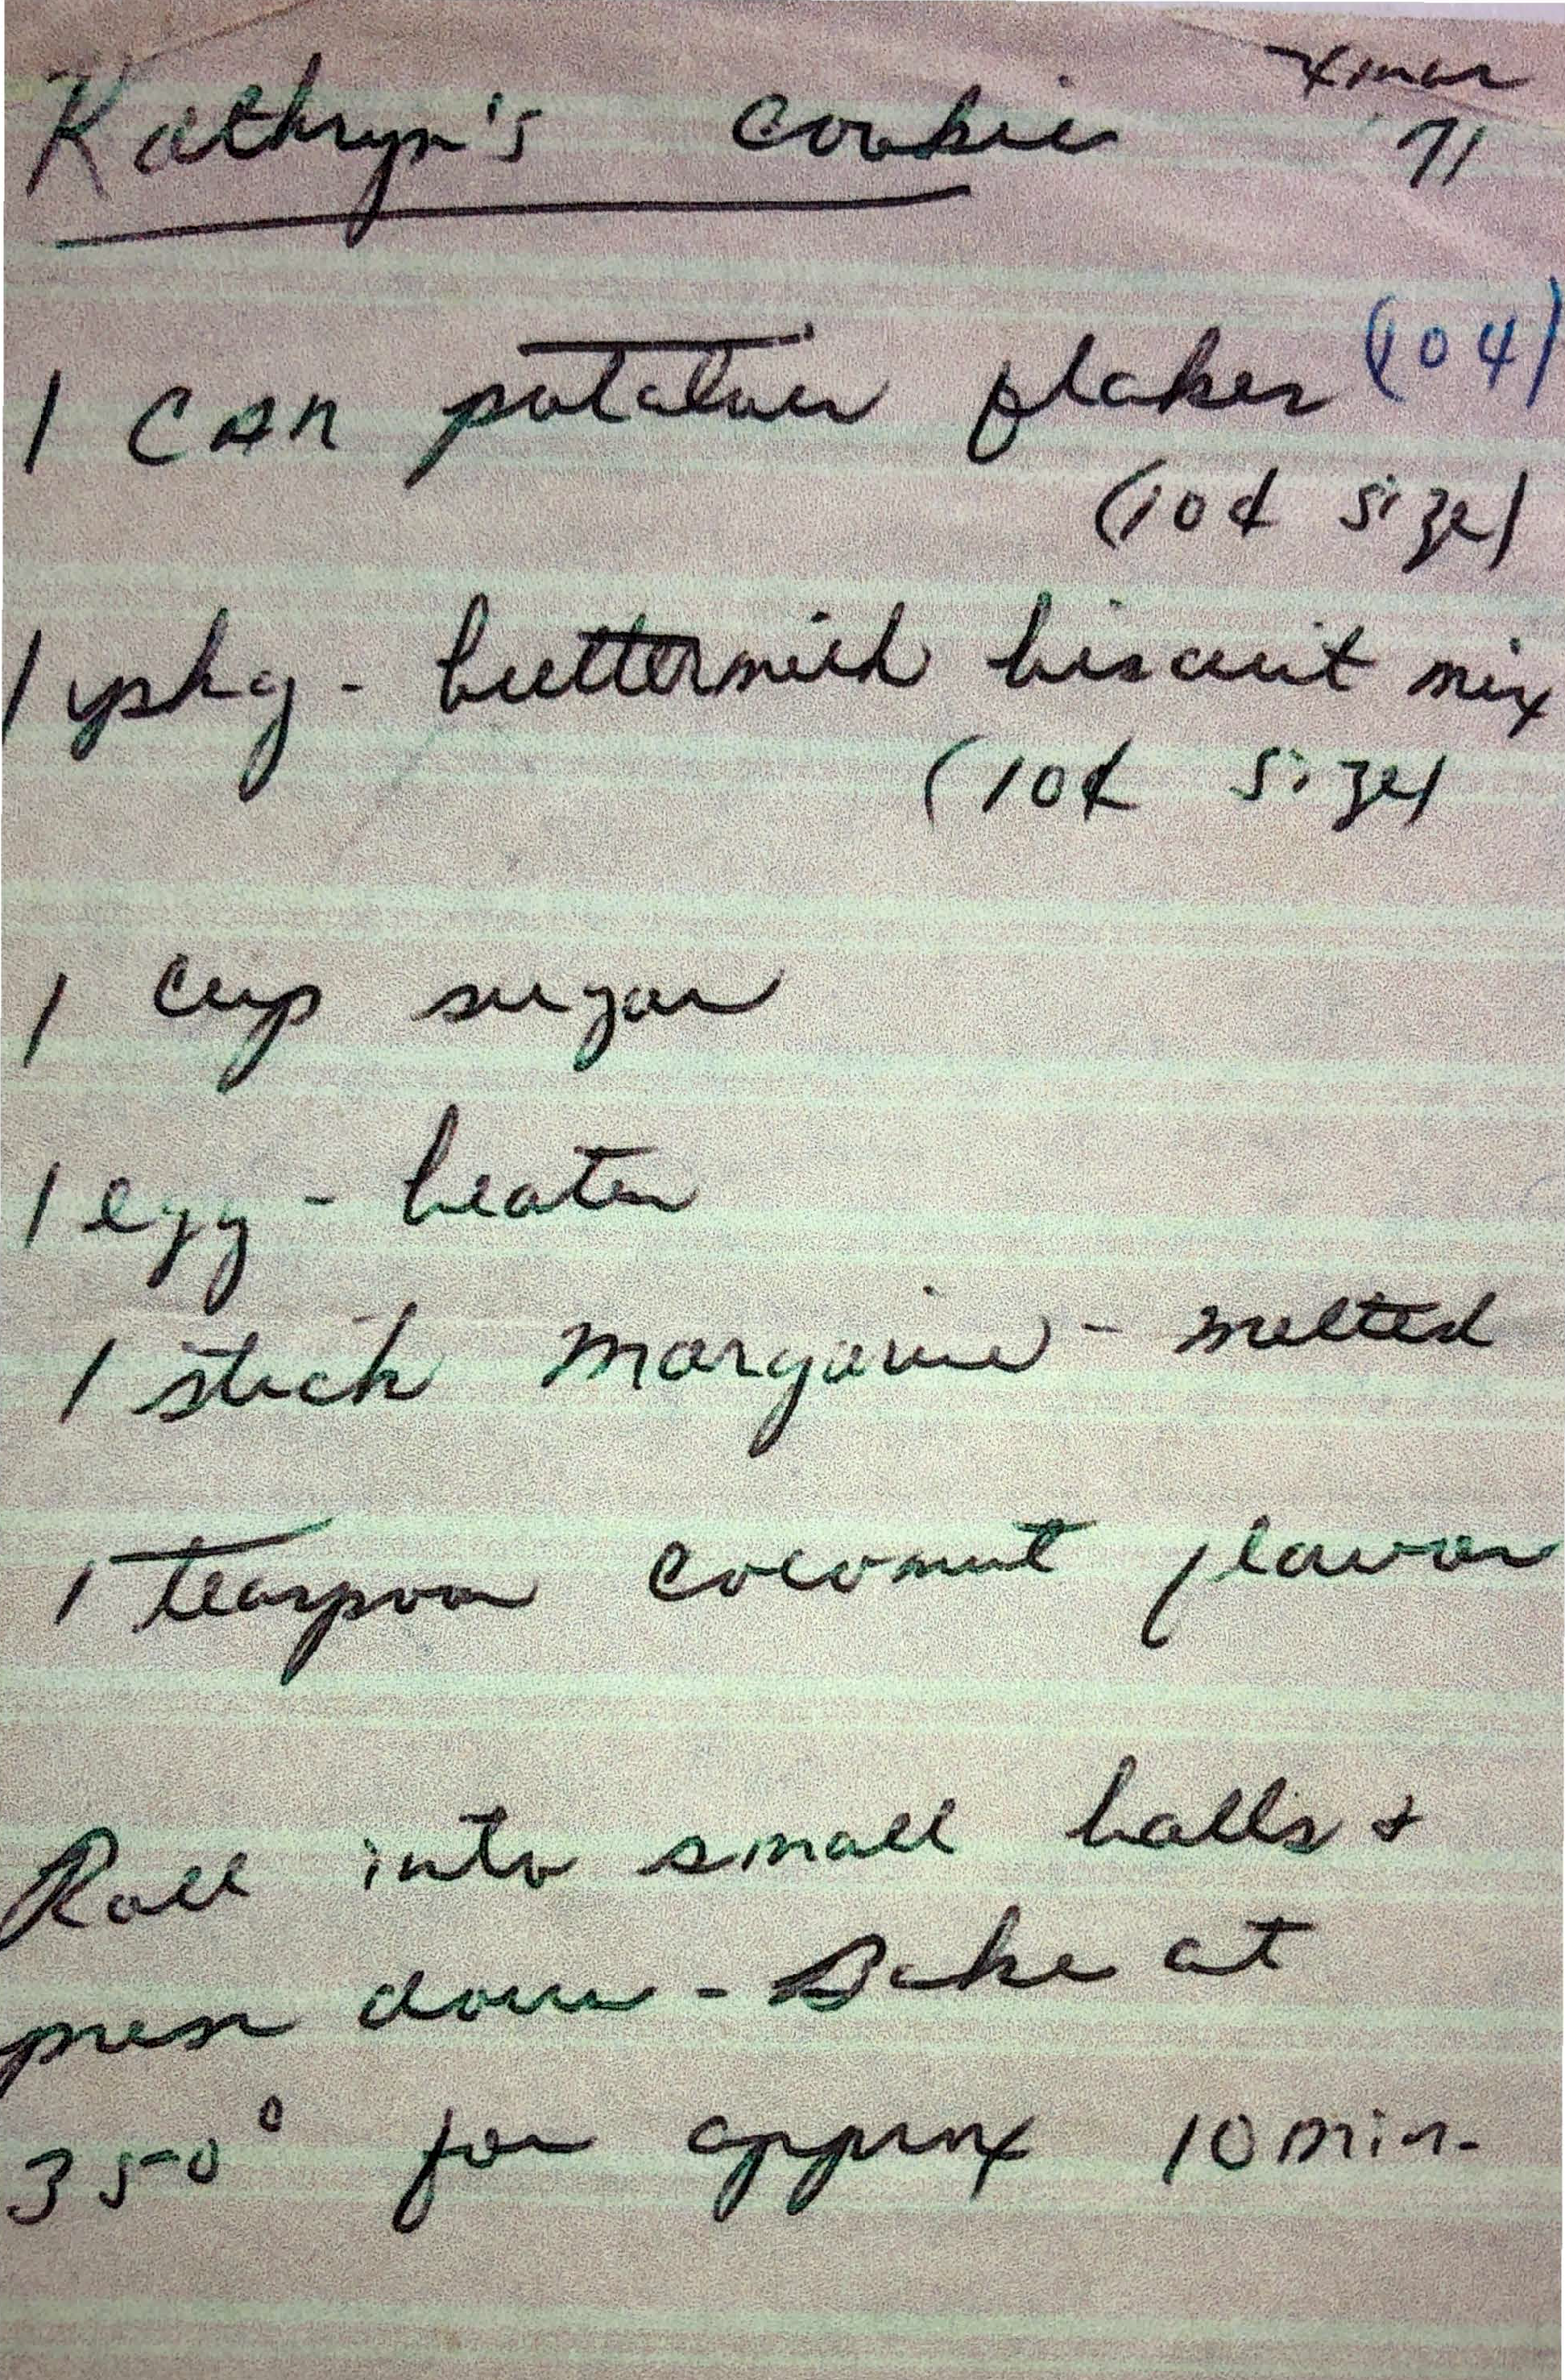 Kathryn's Cookie Xmas '71
1 can potatoes flakes
(10¢ size)
1 pkg - buttermilk biscuit mix
(10¢ size)
1 cup sugar
1 egg - beaten
1 stick margarine - melted
1 teaspoon coconut flavor
Roll into small balls &
press down - Bake at
350° for approx 10 min.